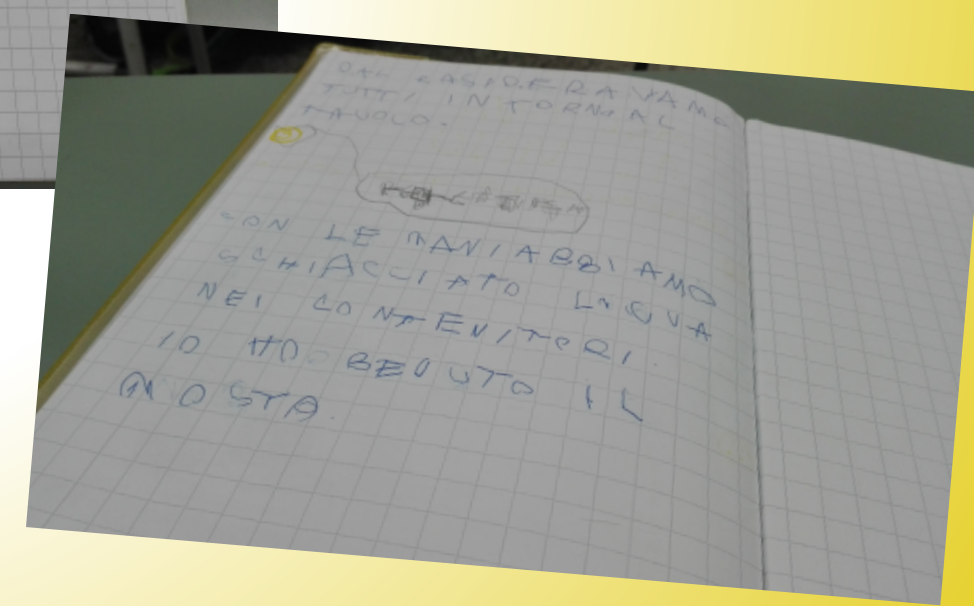 TUTTI INTORNO AL
TAVOLO.
CON LE MANI ABBIAMO
SCHIACCIATO L'UVA
NEI CONTENITORI.
IO HO BEVUTO IL
MOSTA.